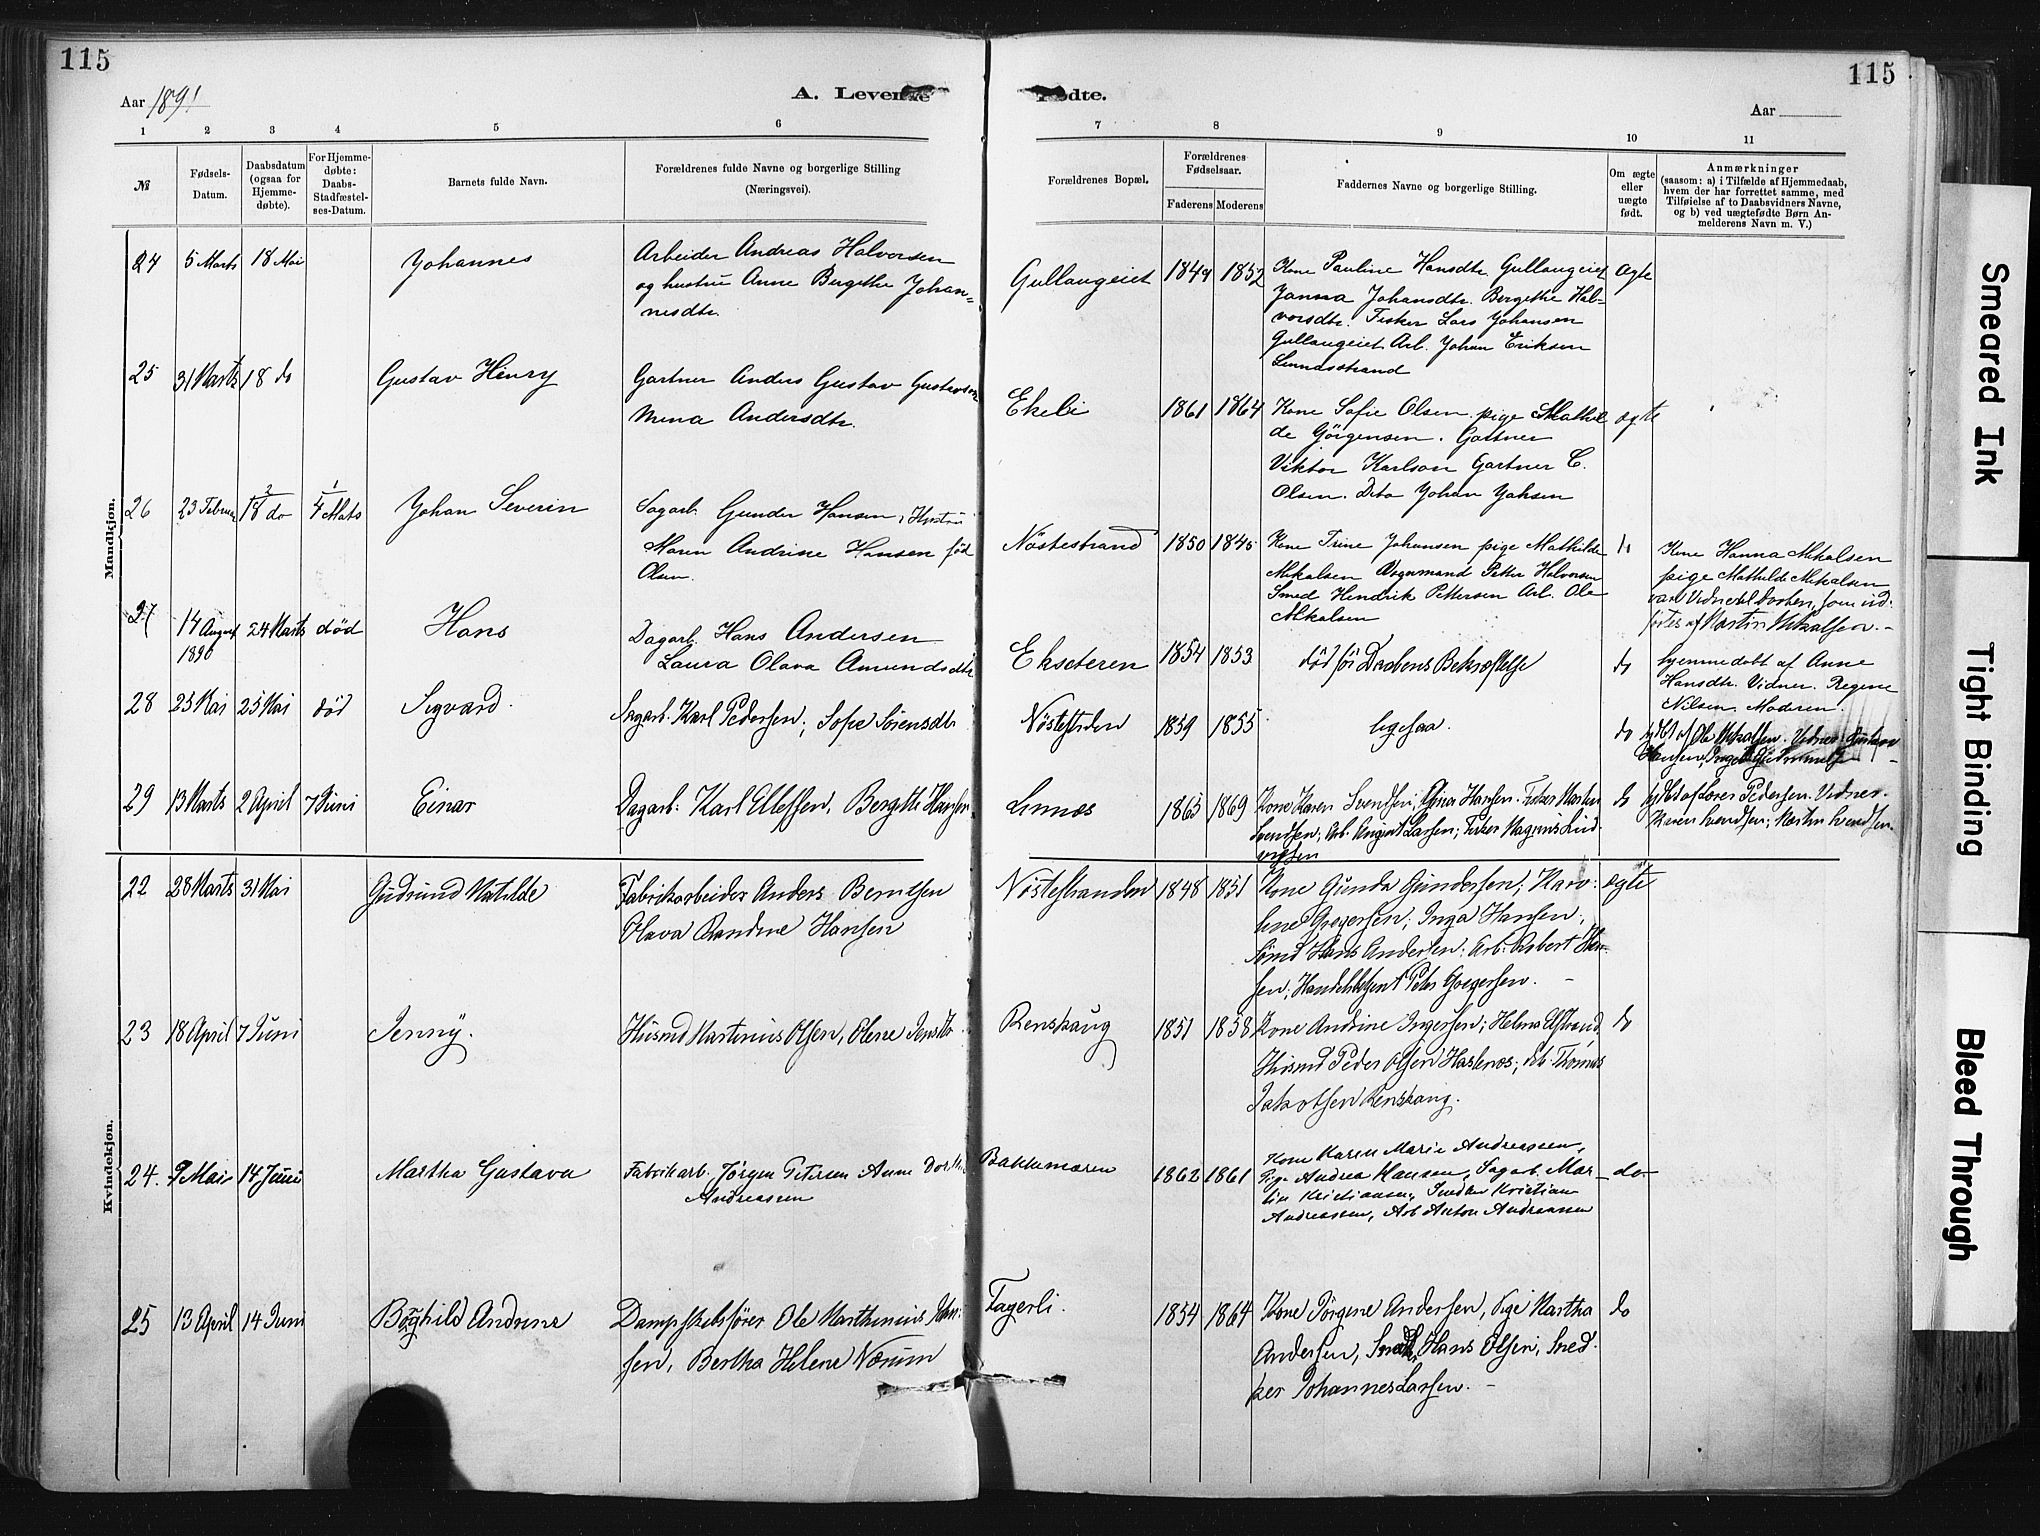 115
115
Aar 1891
A. Levende Fødte.
Aar
1 2 3 4 5 6 7 8 9 10 11
№
Fødsels-Datum.
Daabsdatum (ogsaa for Hjemme-døbte).
For Hjemme-døbte: Daabs-Stadfæstel-ses-Datum.
Barnets fulde Navn.
Forældrenes fulde Navne og borgerlige Stilling
(Næringsvei).
Forældrenes Bopæl.
Forældrenes Fødselsaar.
Faderens Moderens
Faddernes Navne og borgerlige Stilling.
Om ægte eller uægte født.
Anmærkninger
(saasom: a) i Tilfælde af Hjemmedaab,
hvem der har forrettet samme, med
Tilføielse af to Daabsvidners Navne,
og b) ved uægtefødte Børn An-
melderens Navn m. V.)
Mandkjøn.
24 5 Marts 18 Mai Johannes Arbeider Andreas Halvorsen
og hustru Anne Bergethe Johan=
nesdtr.
Gullaugeiet 1849 1852 Kone Pauline Hansdtr. Gullaugeiet ægte
Janna Johansdtr. Bergethe Hal=
vorsdtr. Fisker Lars Johansen
Gullaugeiet Arb. Johan Eriksen
Linnesstrand
25 31 Marts 18 do Gustav Henry Gartner Anders Gustav Gustavsen
Mina Andersdtr.
Ekebi 1861 1864 Kone Sofie Olsen pige Mathil
de Görgensen. Gartner
Viktor Karlson Gartner C.
Olsen. Dito Johan Jahsen
ægte
26 23 Februar 18 do 4 Mats Johan Severin Sagarb. Gunder Hansen, Hustru
Maren Andrine Hansen fød
Olsen.
Nöstestrand 1850 1845 Kone Trine Johansen pige Mathilde do
Mikalsen Vognmand Petter Halvorsen
Smed Hendrik Pettersen Arb. Ole
Mikalsen
Kone Hanna Mikalsen
pige Mathilde Mikalsen
var Vidne til Daaben, som ud-
førtes af Martin Mikalsen.
27 14 August 1890 24 Marts død Hans Dagarb. Hans Andersen
Laura Olava Amundsdtr
Ekseteren 1854 1853 død før Daabens Bekræftelse do
hjemmedøbt af Anne
Hansdtr. Vidner. Regine
Nilsen, Madsen.
28 25 Mai 25 Mai død Sigvard. Sagarb. Karl Pedersen; Sofie Sörensdtr
1859 1855 ligesaa. do
29 13 Marts 2 April 7 Juni Einar Dagarb. Karl Ellefsen, Bergitte Hansen
Linnes 1865 1869 Kone Karen Svendsen; Hansen. Fisker Martin
Svendsen; Arb. August Larsen; Fisker Magnus Lud
vigsen
do
Pedersen. Vidner
Karen Svendsen; Martin Svendsen.
Kvindekjøn.
22 28 Marts 31 Mai Gudrund Matilde Fabrikarbeider Anders Berntsen
Olava Randine Hansen
Nöstestranden 1848 1851 Kone Gunda Gundersen; Karo-
line Gregersen; Inga Hansen;
Smed Hans Andersen; Arb. Asbert Han-
sen; Handelsbetjent Peter Gregersen.
ægte
23 18 April 7 Juni Jenny. Husmd Martinius Olsen, Olene Jensdtr
Renskaug 1851 1858 Kone Andrine Ingersen; Helene do
Husmd Peder Olsen Haslenæs; Arb. Thomas
Jakobsen Renskaug.
24. 9 Mai 14 Juni Martha Gustava Fabrikarb. Jørgen Petersen Anne Dorthe
Andreassen
Bakkemoren 1862 1861 Kone Karen Marie Andreassen,
Pige Andrea Hansen, Sagarb. Mar-
tin Kristiansen, Snedker Kristian
Andreassen, Arb Anton Andreassen
do
25 13 April 14 Juni Borghild Andrine Dampskibsfører Ole Marthinius Han-
sen, Bertha Helene Nærum
Fagerli. 1854 1864 Kone Jörgine Andersen, Pige Martha do
Andersen, Hans Olsen, Sned-
ker Johannes Larsen.
Smeared Ink
Tight Binding
Bleed Through